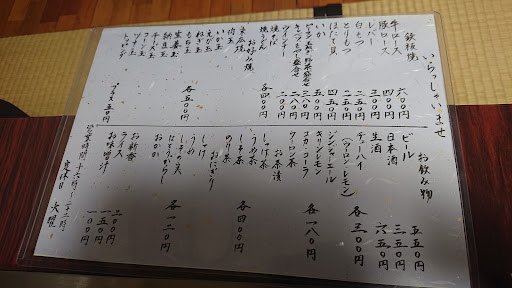 いらっしゃいませ
鉄板焼
牛ロース 六〇〇円
豚ロース 四〇〇円
レバー 三〇〇円
白もつ 二五〇円
とりもつ 二五〇円
ほたて貝 四五〇円
いか 三五〇円
ウインナー 二八〇円
焼そば
焼うどん
各四〇〇円
お好み焼
肉玉
いか玉
えび玉
もち玉
納豆玉
チーズ玉
コーン玉
ツナ玉
各五〇〇円
トッピング
プラス五〇円
お飲み物
ビール 五五〇円
日本酒 三五〇円
生酒 六五〇円
チューハイ
(ウーロン・レモン)
各三〇〇円
ジンジャーエール
キリンレモン
コカ・コーラ
ウーロン茶
各一八〇円
お茶漬
しゃけ茶
うめ茶
のり茶
各四〇〇円
おにぎり
しゃけ
うめ
しその実
はとうがらし
おかか
各一二〇円
お新香 二〇〇円
ライス 一五〇円
お味噌汁 一〇〇円
営業時間 十六時〜二二時
定休日 火曜